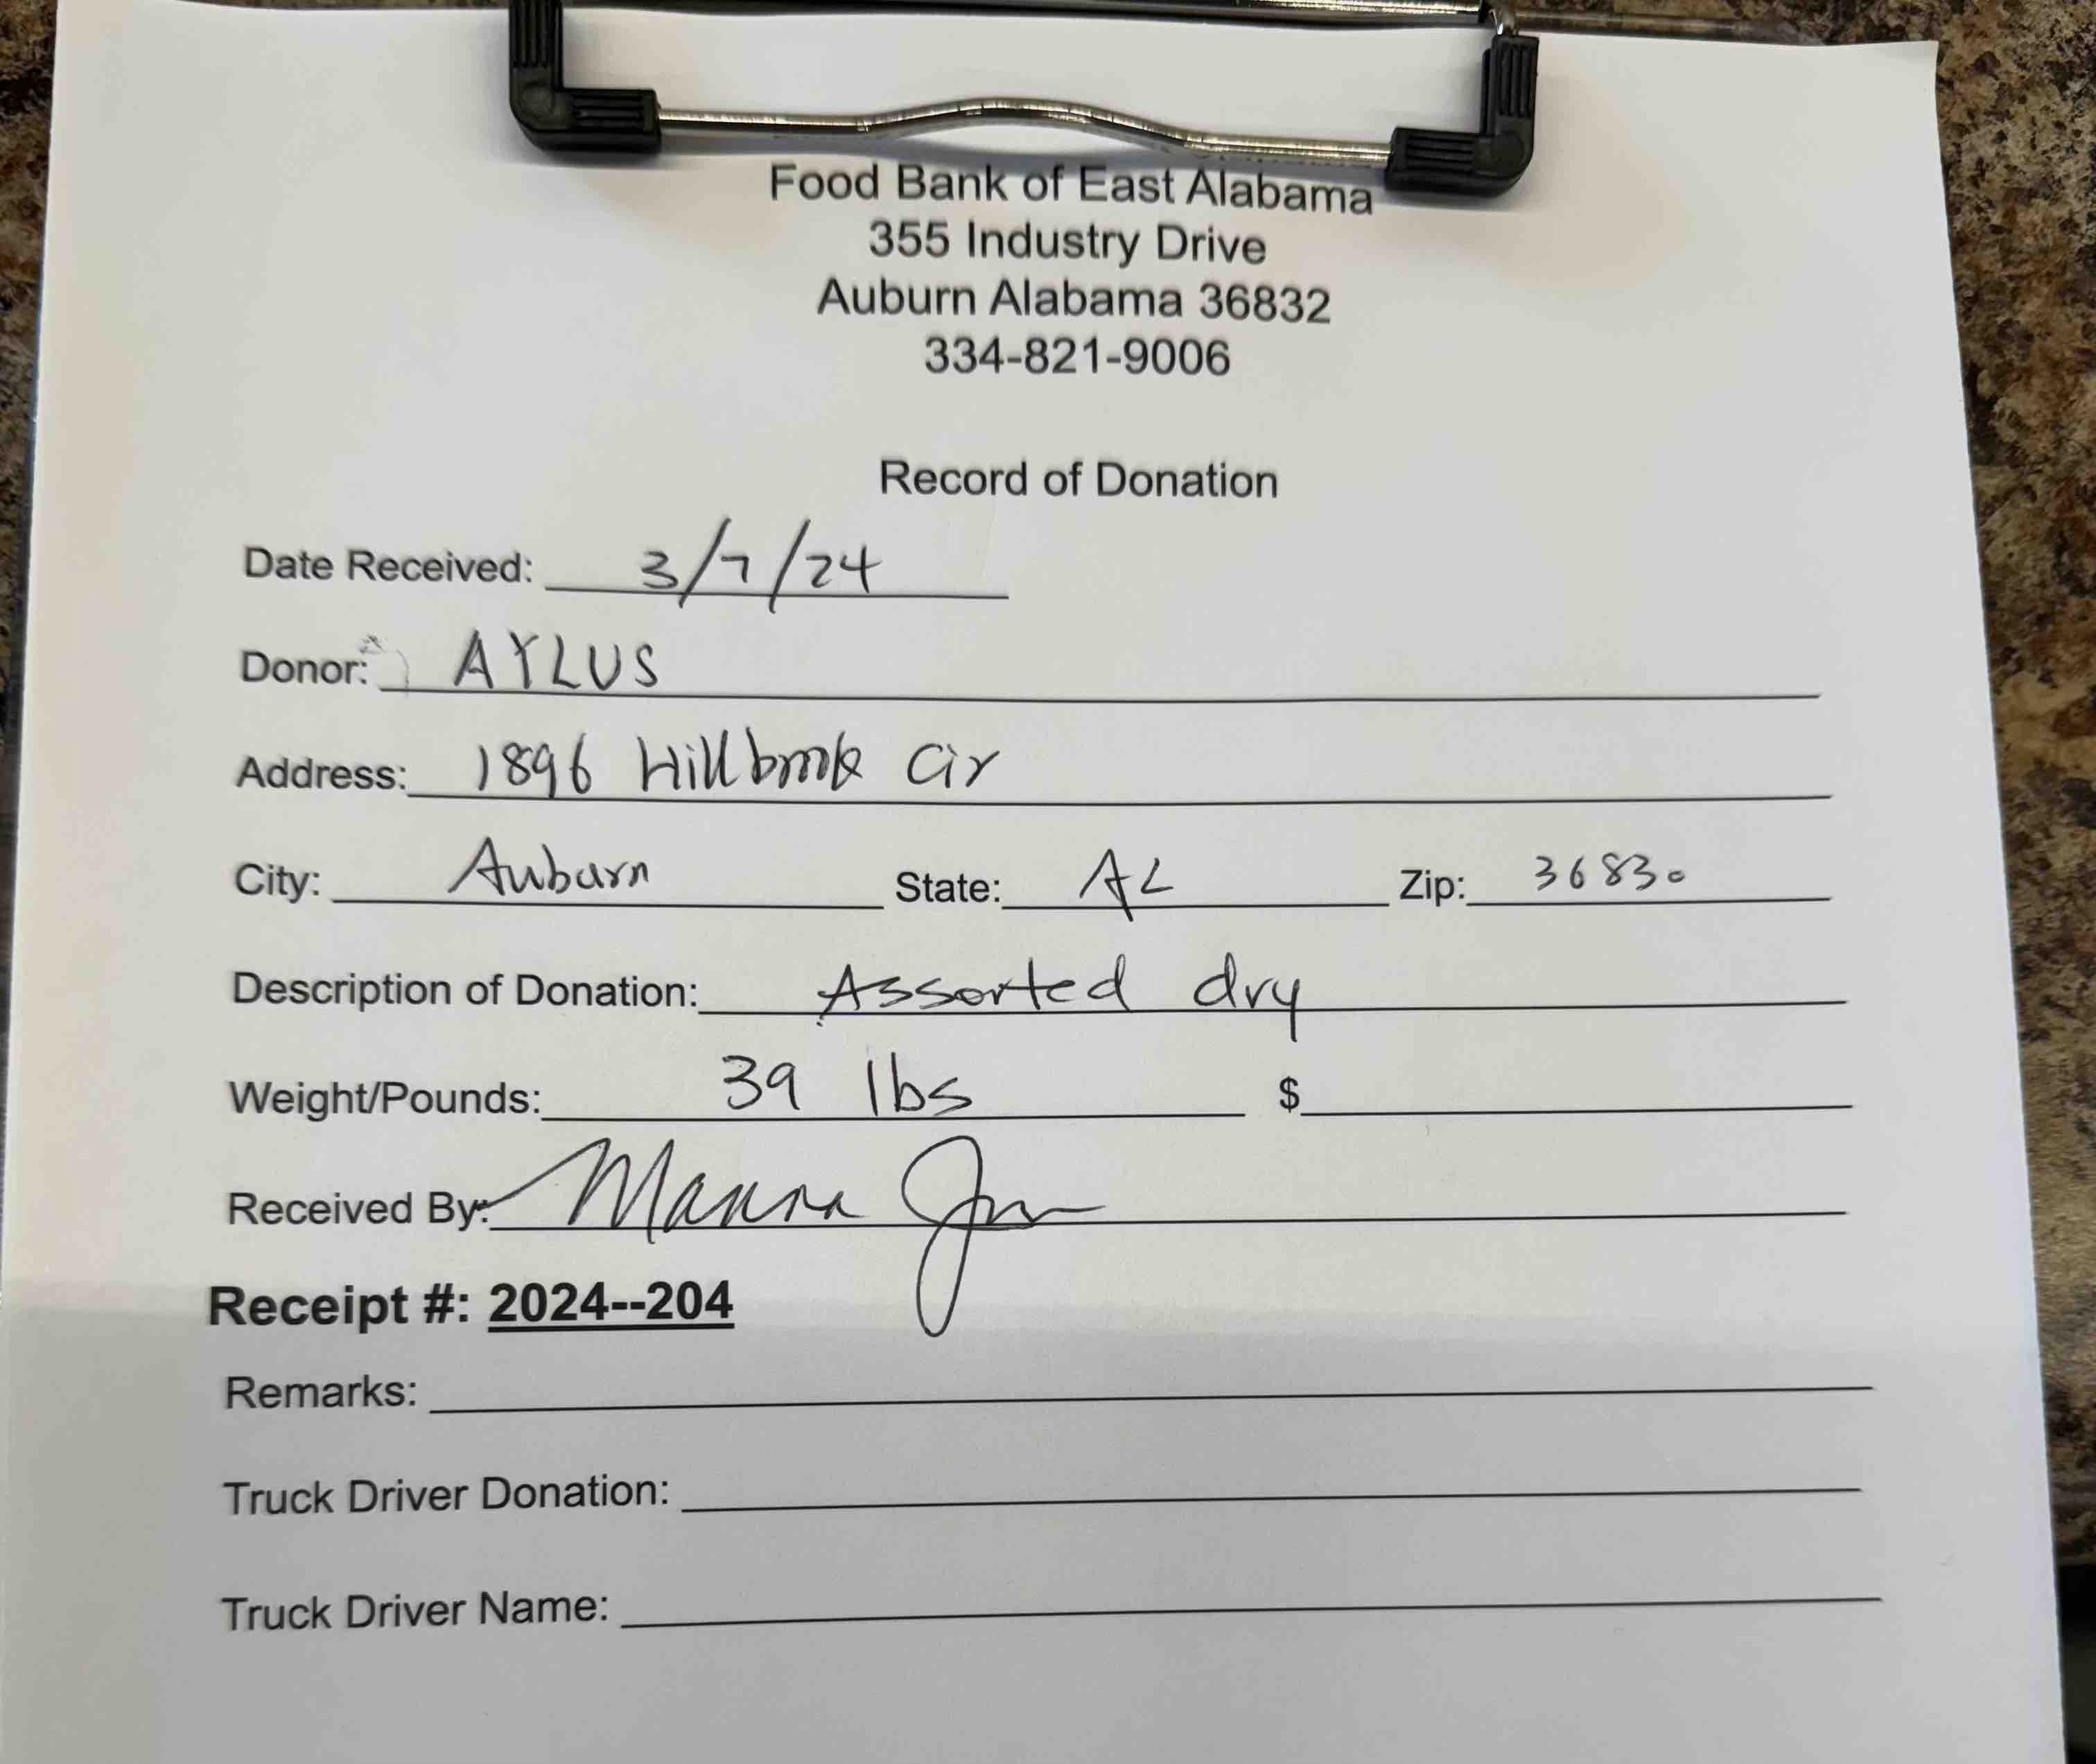 Food Bank of East Alabama
355 Industry Drive
Auburn Alabama 36832
334-821-9006
Record of Donation
Date Received: 3/7/24
Donor: AYLUS
Address: 1896 Hillbrook Cir
City: Auburn State: AL Zip: 36830
Description of Donation: Assorted dry
Weight/Pounds: 39 lbs $
Received By:
Receipt #: 2024--204
Remarks:
Truck Driver Donation:
Truck Driver Name: